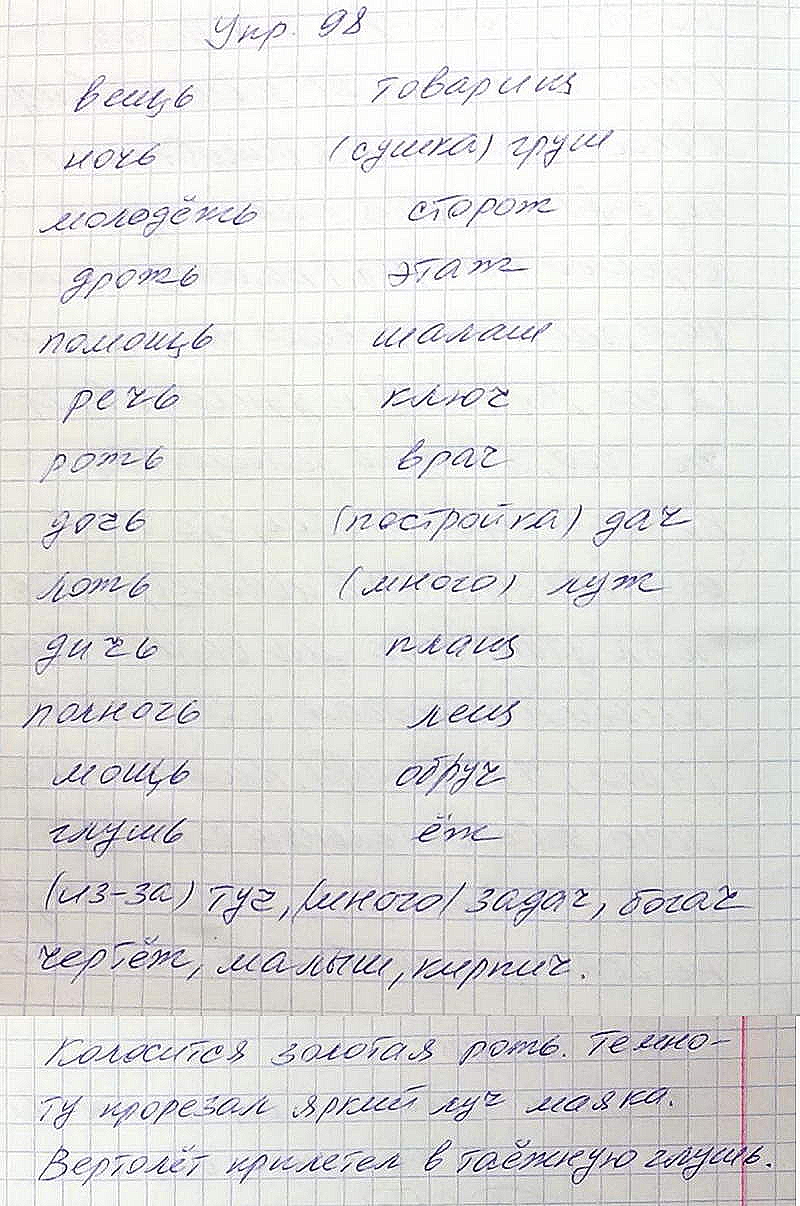 Упр. 98
вещь товарищ
ночь (сушка) груш
молодёжь сторож
дрожь этаж
помощь шалаш
речь ключ
рожь врач
дочь (постройка) дач
ложь (много) луж
дичь плащ
полночь лещ
мощь обруч
глушь ёж
(из-за) туч, (много) задач, богач
чертёж, малыш, кирпич.
Колосится золотая рожь. Темно-
ту прорезал яркий луч маяка.
Вертолёт прилетел в таёжную глушь.